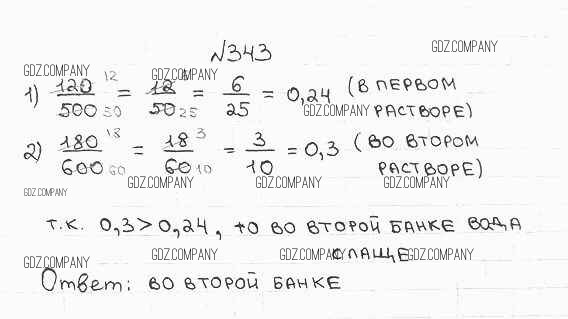 №343
GDZ.COMPANY
GDZ.COMPANY GDZ.COMPANY
1) 120/500 12/50 = 12/50 6/25 = 6/25 = 0,24 (в первом
GDZ.COMPANY
растворе)
2) 180/600 18/60 = 18/60 3/10 = 3/10 = 0,3 (во втором
растворе)
GDZ.COMPANY GDZ.COMPANY GDZ.COMPANY
GDZ.COMPANY
т.к. 0,3 > 0,24, то во второй банке вода
слаще
GDZ.COMPANY GDZ.COMPANY GDZ.COMPANY GDZ.COMPANY
Ответ: во второй банке